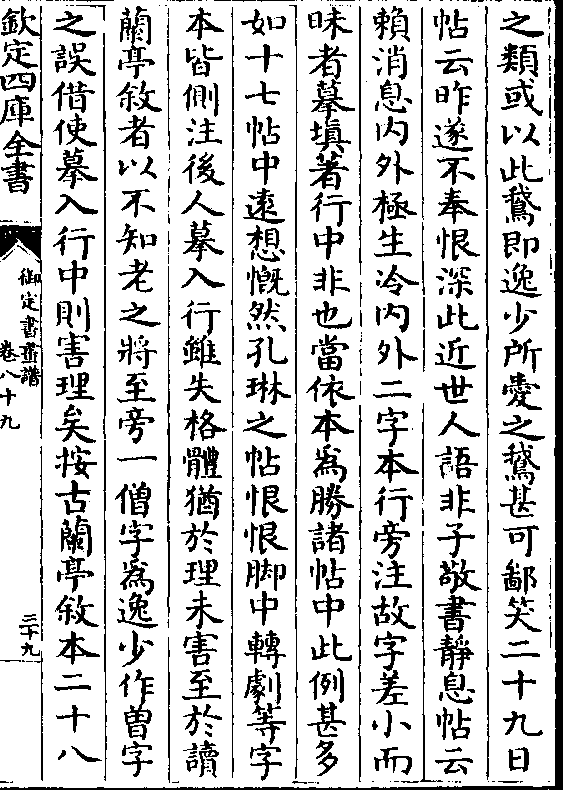 之類或以此鵞即逸少所愛之鵞甚可鄙笑二十九日
帖云昨遂不奉恨深此近世人語非子敬書靜息帖云
賴消息内外極生冷内外二字本行旁注故字差小而
昧者摹塡著行中非也當依本為勝諸帖中此例甚多
如十七帖中遠想慨然孔琳之帖恨恨脚中轉劇等字
本皆側注後人摹入行雖失格體猶於理未害至於讀
蘭亭敘者以不知老之將至旁一僧字為逸少作曽字
之誤借使摹入行中則害理矣按古蘭亭敘本二十八
欽定四庫全書
御定書畫譜
卷八十九
三十九